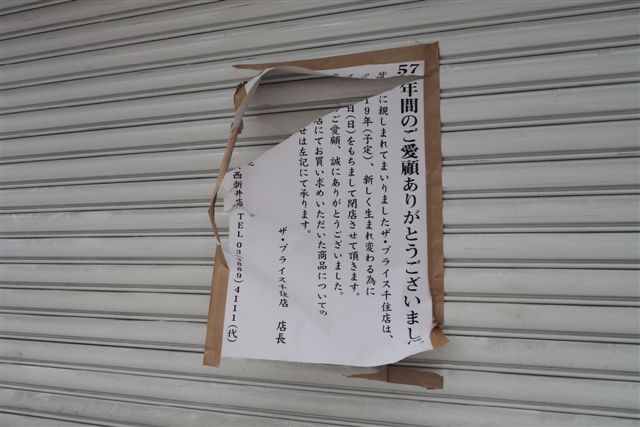 57年間のご愛顧ありがとうございまし。
に親しまれてまいりましたザ・プライス千住店は、
19年(予定)、新しく生まれ変わる為に
日(日)をもちまして閉店させて頂きます。
ご愛顧、誠にありがとうございました。
店にてお買い求めいただいた商品についての
せは左記にて承ります。
ザ・プライス千住店 店長
西新井店 TEL 03 4111(代)